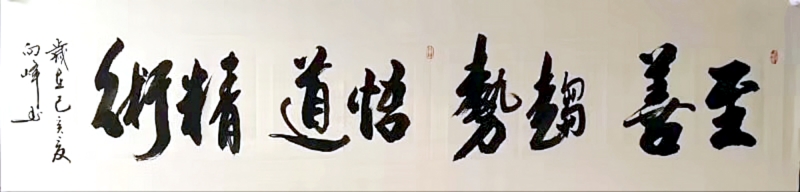 至善趨勢悟道精術
歲在己亥夏
向峰书